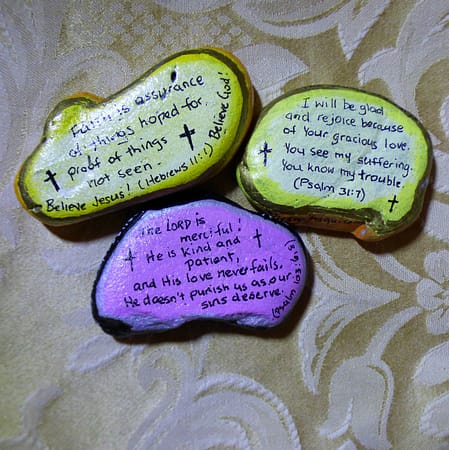 Faith is assurance
of things hoped for,
proof of things
not seen.
Believe Jesus! (Hebrews 11:1) Believe God!
I will be glad
and rejoice because
of Your gracious love.
You see my suffering.
You know my trouble.
(Psalm 31:7)
The LORD is
merciful!
He is kind and
patient,
and His love never fails.
He doesn't punish us as our
sins deserve.